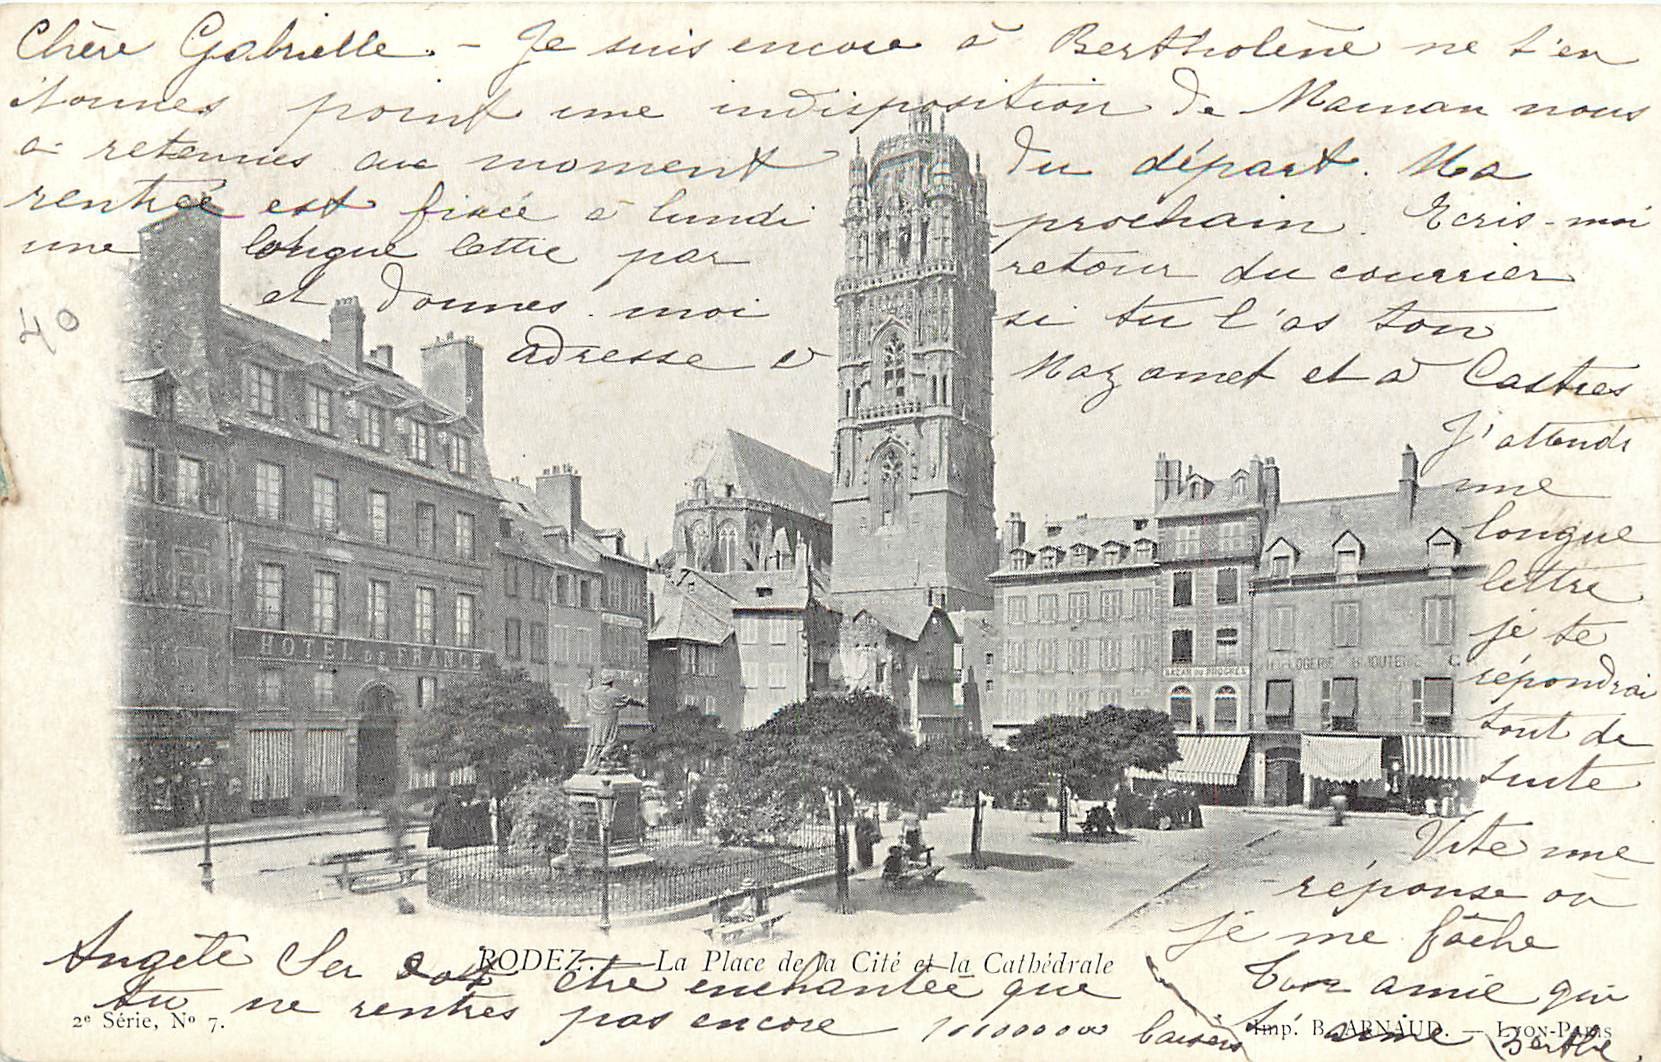 Chère Gabrielle. – Je suis encore à Bertholène ne t'en
étonnes point une indisposition de Maman nous
a retenues au moment du départ. Ma
rentrée est fixée à lundi prochain. Ecris-moi
une longue lettre par retour du courrier
et donnes-moi si tu l'as ton
adresse à Mazamet et à Castres
J'attends
une
longue
lettre
je te
répondrai
tout de
suite
Vite une
réponse ou
je me fâche
Ton amie qui
t'aime Berthe
40
HOTEL DE FRANCE
BAZAR DU PROGRES
HORLOGERIE BIJOUTERIE
RODEZ. — La Place de la Cité et la Cathédrale
Angèle Ser doit être enchantée que
tu ne rentres pas encore 10000000 baisers
2e Série, No 7.
Imp. B. ARNAUD. — LYON-PARIS